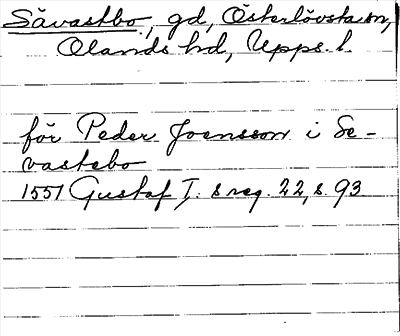 Sävastbo, gd, Österlövsta sn,
Olands hd, Upps. l.
för Peder Joensson i Se-
vastebo
1551 Gustaf I:s reg. 22, s. 93